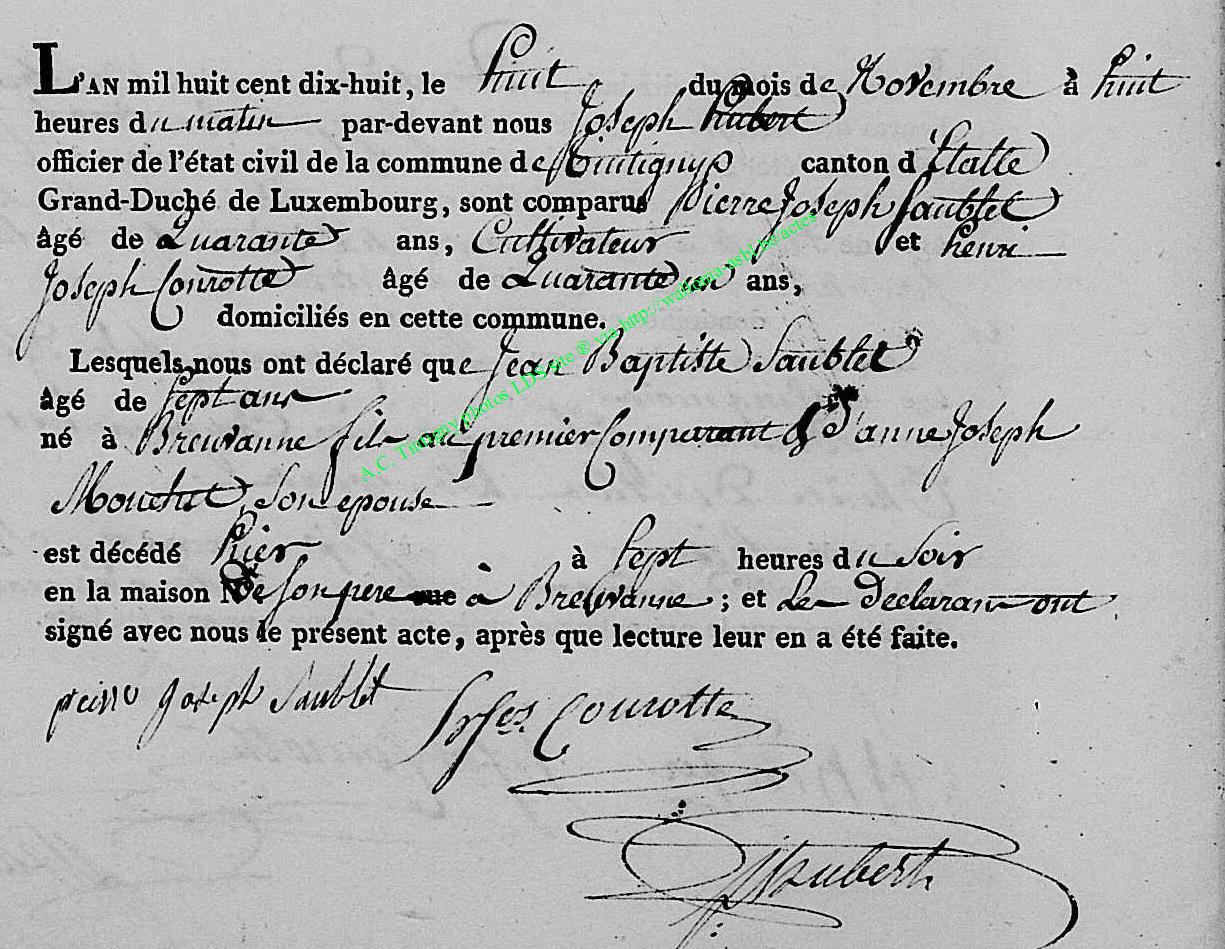 L'AN mil huit cent dix-huit, le huit du mois de Novembre à huit
heures du matin par-devant nous Joseph hubert
officier de l'état civil de la commune de Tintigny canton d'Etalle
Grand-Duché de Luxembourg, sont comparus pierre Joseph Saublet
âgé de Quarante ans, Cultivateur et henri
Joseph Courotte âgé de Quarante un ans,
domiciliés en cette commune.
Lesquels nous ont déclaré que Jean Baptiste Saublet
âgé de Sept ans
né à Breuvanne fils du premier Comparant & d'anne Joseph
son epouse
est décédé hier à Sept heures du Soir
en la maison de son pere rue à Breuvanne; et Les Declarans ont
signé avec nous le présent acte, après que lecture leur en a été faite.
Joseph Saublet
Courotte
Hubert
A.C. Timmy photos LDS site ® via http://wallonia-asbl.be/actes